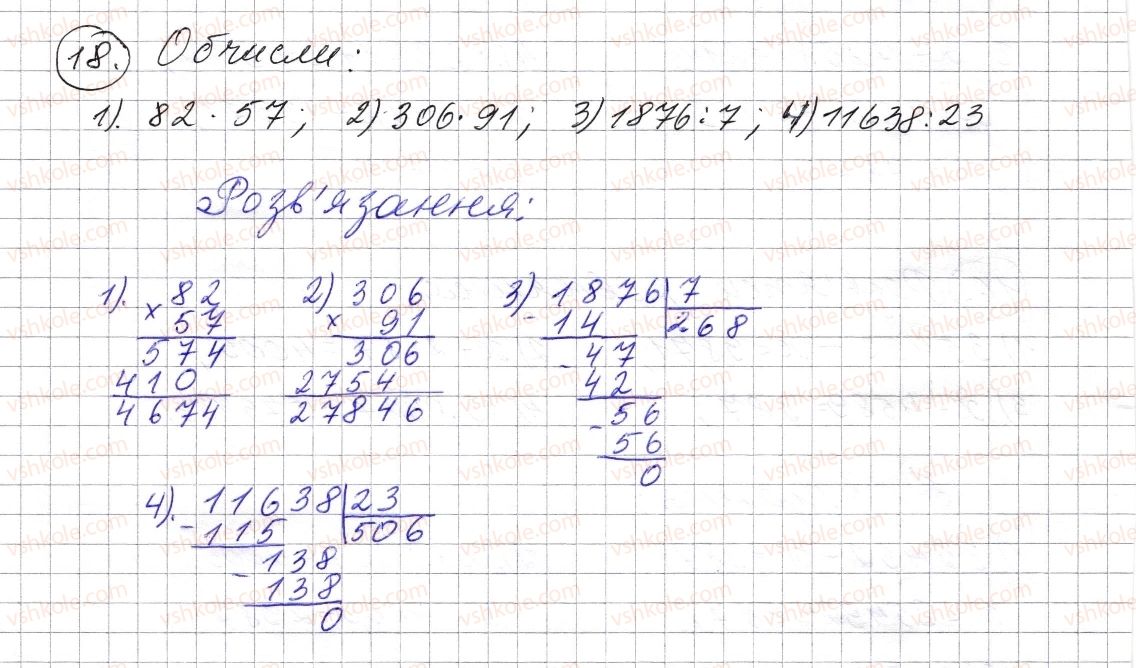 18. Обчисли:
1). 82 · 57; 2) 306 · 91; 3) 1876 : 7; 4) 11638 : 23
Розв'язання:
1). 82
× 57
574
410
4674
2) 306
× 91
306
2754
27846
3) 1876 | 7
- 14 | 268
- 47
42
- 56
56
0
4). 11638 | 23
- 115 | 506
- 138
138
0
vshkole.com